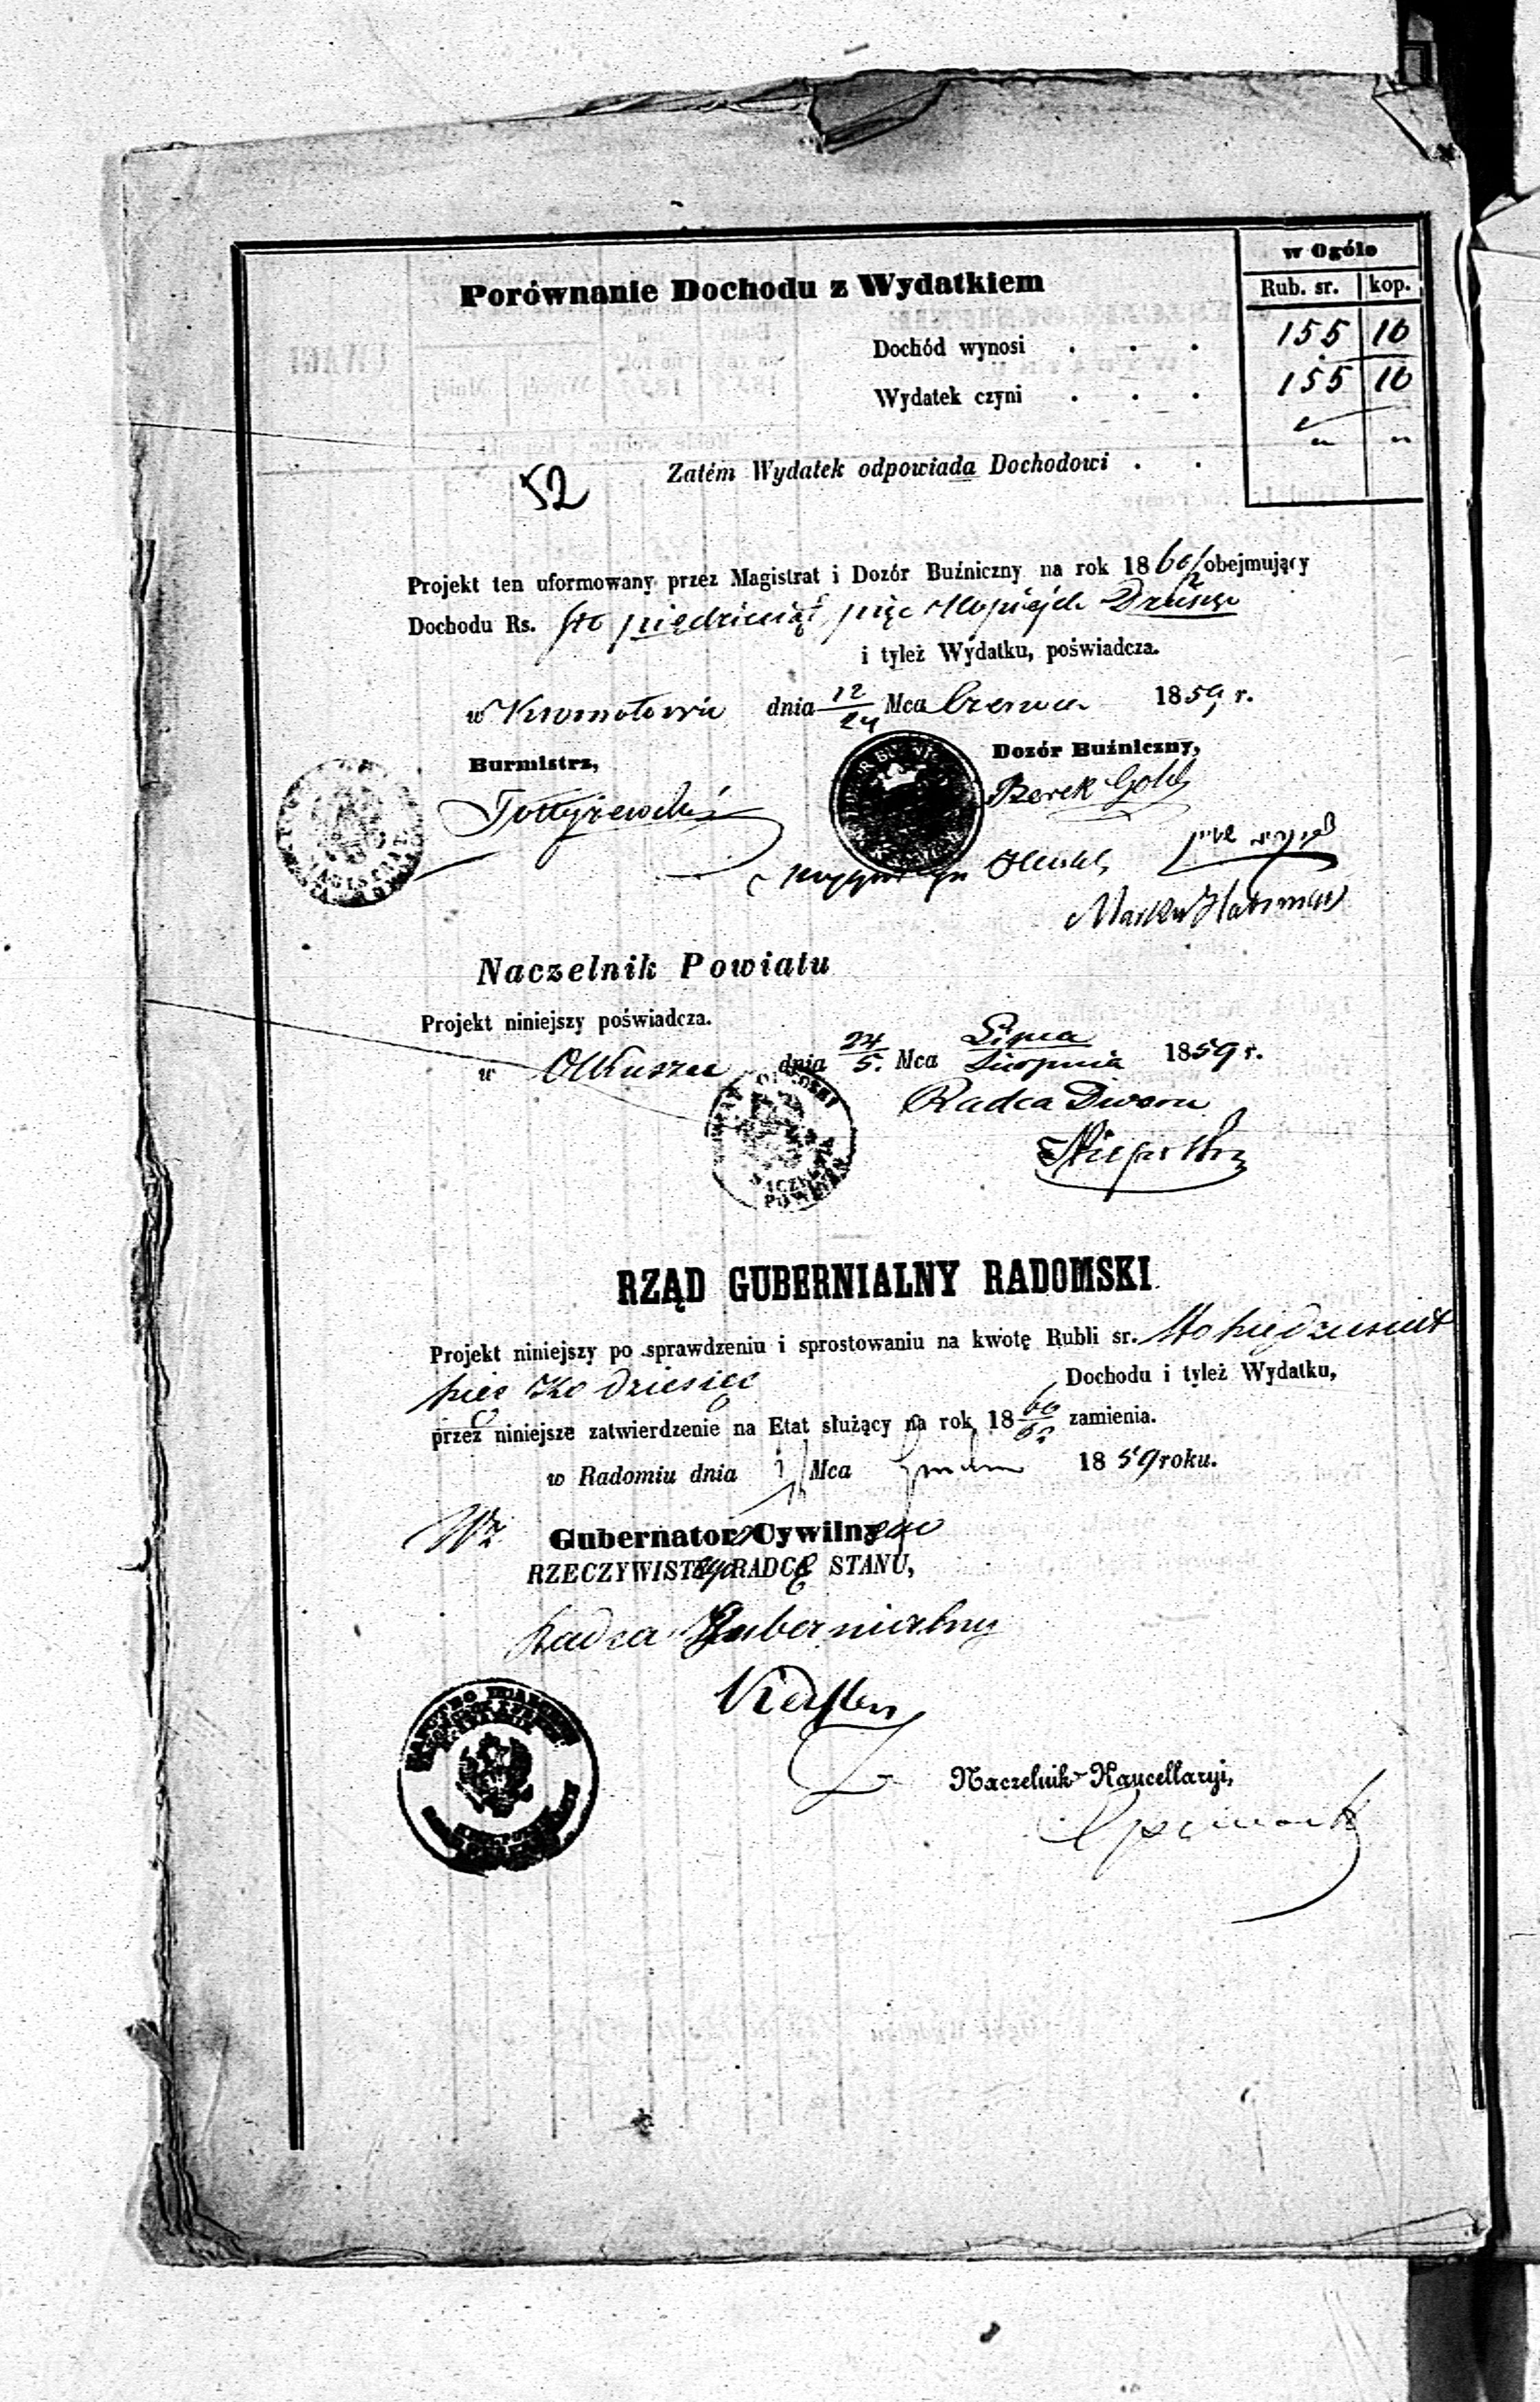 w Ogóle
Rub. sr. kop.
Porównanie Dochodu z Wydatkiem
Dochód wynosi . . . 155 10
Wydatek czyni . . . 155 10
Zatém Wydatek odpowiada Dochodowi . . " "
52
Projekt ten uformowany przez Magistrat i Dozór Buźniczny na rok 1860/2 obejmujący
Dochodu Rs. sto pięćdziesiąt pięć Kopiejek Dziesięć
i tyleż Wydatku, poświadcza.
w Kromołowie dnia 12/24 Mca Czerwca 1859 r.
Burmistrz,
Dozór Buźniczny,
Berek Gold
Markus
Naczelnik Powiatu
Projekt niniejszy poświadcza.
w Olkuszu dnia 24/5. Mca Lipca/Sierpnia 1859 r.
Radca Dworu
NACZELNIK POWIATU
RZĄD GUBERNIALNY RADOMSKI
Projekt niniejszy po sprawdzeniu i sprostowaniu na kwotę Rubli sr. sto pięćdziesiąt
pięć ko dziesięć Dochodu i tyleż Wydatku,
przez niniejsze zatwierdzenie na Etat służący na rok 18 60/62 zamienia.
w Radomiu dnia Mca 1859 roku.
Wz Gubernatora Cywilnego
RZECZYWISTEgo RADCĘ STANU,
Radca Gubernialny
Naczelnik Kancellaryi,